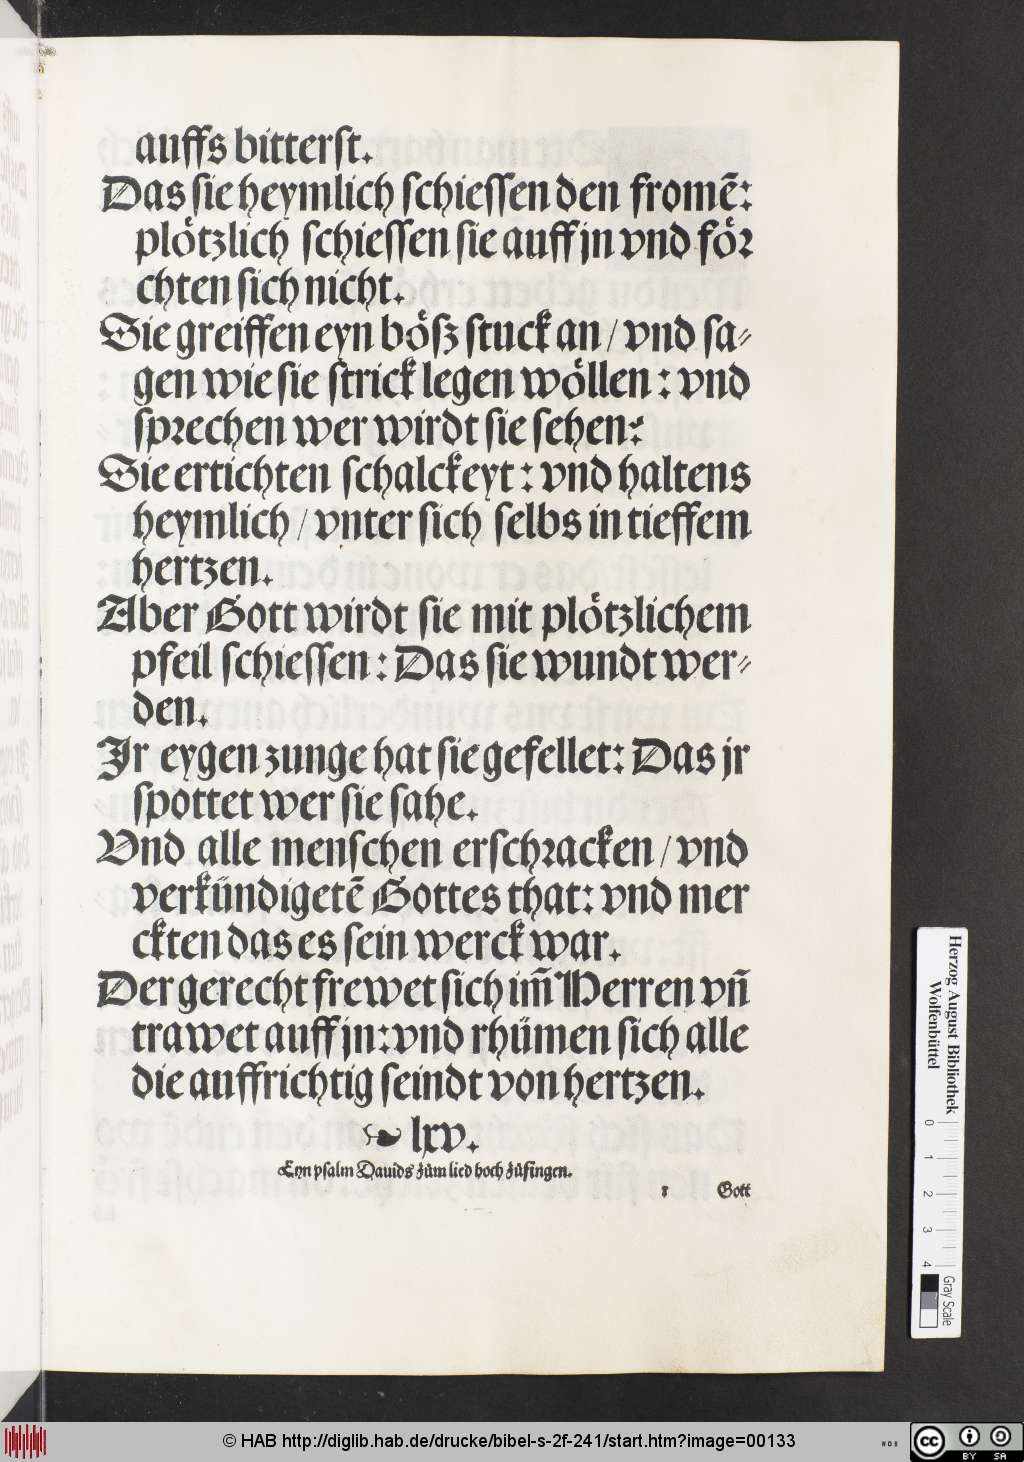 auffs bitterst.
Das sie heymlich schiessen den fromē:
plötzlich schiessen sie auff jn vnd för
chten sich nicht.
Sie greiffen eyn böß stuck an / vnd sa⸗
gen wie sie strick legen wöllen : vnd
sprechen wer wirdt sie sehen:
Sie ertichten schalckeyt : vnd haltens
heymlich / vnter sich selbs in tieffem
hertzen.
Aber Gott wirdt sie mit plötzlichem
pfeil schiessen : Das sie wundt wer⸗
den.
Jr eygen zunge hat sie gefellet: Das jr
spottet wer sie sahe.
Vnd alle menschen erschracken / vnd
verkündigetē Gottes that: vnd mer
ckten das es sein werck war.
Der gerecht frewet sich im̄ Herren vn̄
trawet auff jn: vnd rhümen sich alle
die auffrichtig seindt von hertzen.
☙ lxv.
Eyn psalm Dauids zům lied hoch zůsingen.
Gott
Herzog August Bibliothek
Wolfenbüttel
0 1 2 3 4
Gray Scale
© HAB http://diglib.hab.de/drucke/bibel-s-2f-241/start.htm?image=00133
cc BY SA